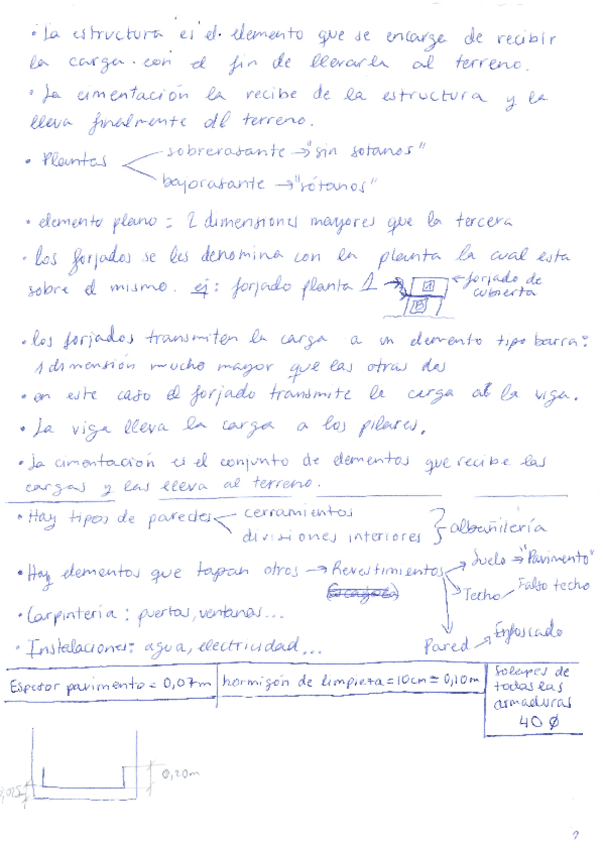 · La estructura es el elemento que se encarga de recibir
la carga con el fin de llevarla al terreno.
· La cimentación la recibe de la estructura y la
lleva finalmente al terreno.
· Plantas
sobrerasante → "sin sotanos"
bajorasante → "sótanos"
· elemento plano = 2 dimensiones mayores que la tercera
· los forjados se les denomina con la planta la cual esta
sobre el mismo. ej: forjado planta 1 →
← forjado de
cubierta
· los forjados transmiten la carga a un elemento tipo barra:
1 dimensión mucho mayor que las otras dos
· en este caso el forjado transmite la carga a la viga.
· La viga lleva la carga a los pilares.
· La cimentación es el conjunto de elementos que recibe las
cargas y las lleva al terreno.
· Hay tipos de paredes
cerramientos
divisiones interiores } albañilería
· Hay elementos que tapan otros → Revestimientos
Suelo → "Pavimento"
Techo → Falso techo
Pared → Enfoscado
· Carpintería: puertas, ventanas...
· Instalaciones: agua, electricidad...
Espesor pavimento = 0,07m
hormigón de limpieza = 10cm = 0,10m
Solapes de
todas las
armaduras
40 Ø
0,20m